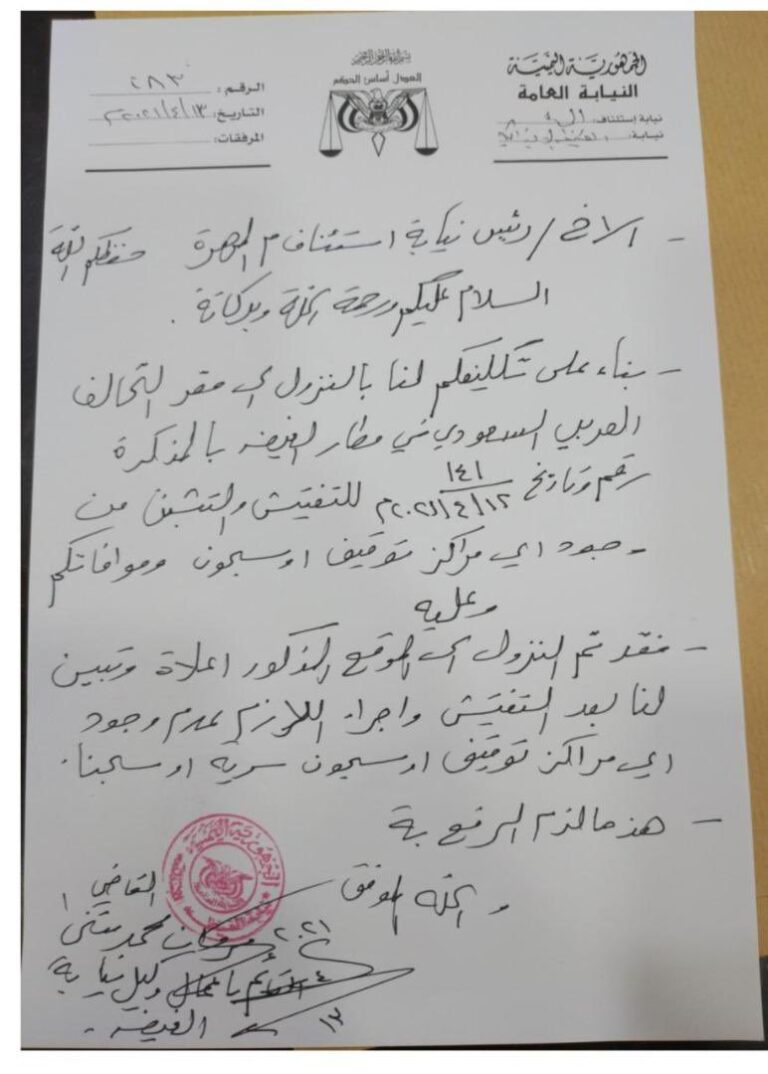 الجمهورية اليمنية
النيابة العامة
نيابة إستئناف:
نيابة:
بسم الله الرحمن الرحيم
العدل أساس الحكم
الرقم: ٢٨٣
التاريخ: ١٣/٤/٢٠٢١م
المرفقات:
- الاخ/ رئيس نيابة استئناف م المهرة حفظكم الله
السلام عليكم ورحمة الله وبركاتة.
- بناء على تكليفكم لنا بالنزول الى مقر التحالف
العربي السعودي في مطار الغيضه بالمذكرة
رقم وتاريخ ١٤١ ١٢/٤/٢٠٢١م للتفتيش والتثبت من
وجود اي مراكز توقيف او سجون وموافاتكم
وعليه
- فقد تم النزول الى الموقع المذكور اعلاة وتبين
لنا بعد التفتيش واجراء اللازم عدم وجود
اي مراكز توقيف او سجون سرية او سجنا.
- هذ مالزم الرفع بة
والله الموفق
القاضي
محمد مثنى
القائم باعمال وكيل نيابة
الغيضه
٢٠٢١
٤
١٣
الجمهورية اليمنية